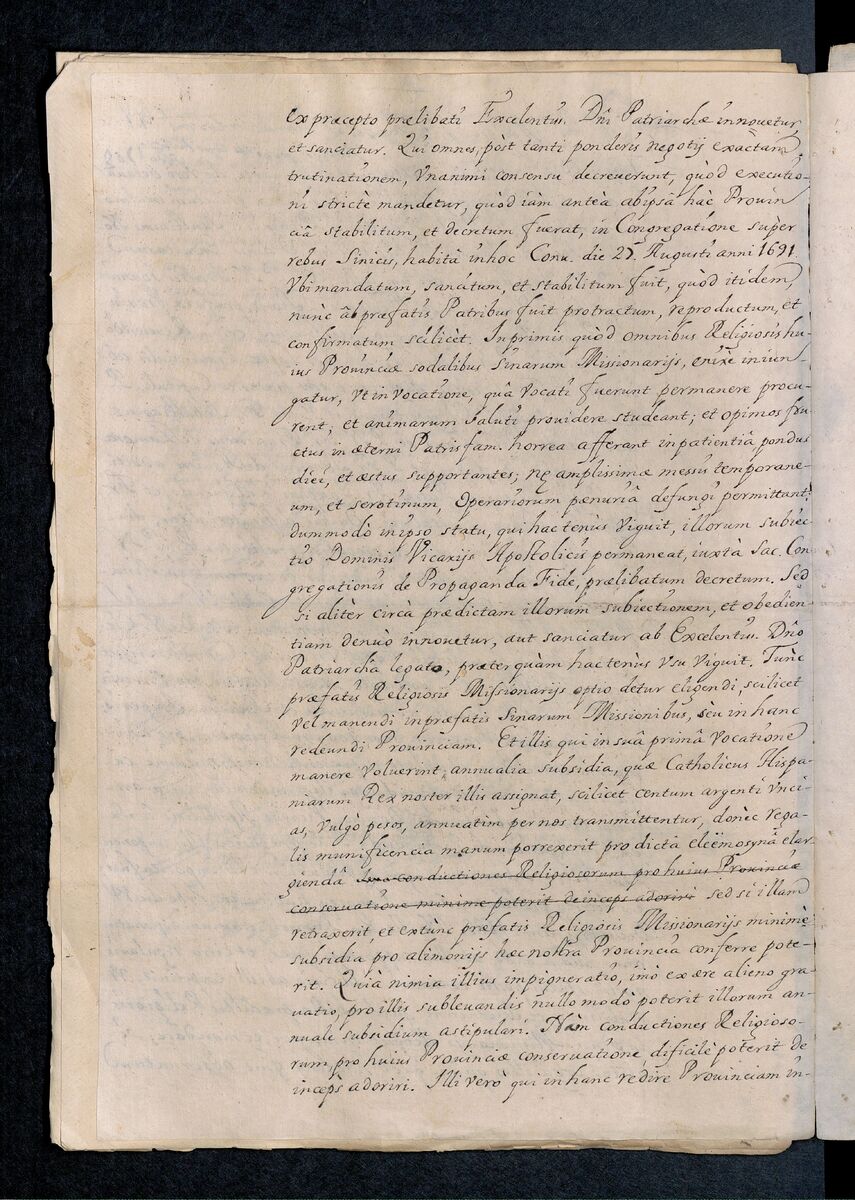 ex præcepto prælibati Excelentis. Dñi Patriarchæ innouetur
et sanciatur. Qui omnes, pòst tanti ponderis negotij exactam
trutinationem, Vnanimi consensu decreuerunt, quòd executio-
ni strictè mandetur, quòd iàm anteà ab ipsâ hâc Prouin
ciâ stabilitum, et decretum fuerat, in Congregatione supèr
rebus Sinicis, habitâ in hoc Conu. die 25 Augusti anni 1691
Vbi mandatum, sancitum, et stabilitum fuit, quòd itidem,
nunc âb præfatis Patribus fuit protractum, reproductum, et
confirmatum scilicèt. In primis quòd omnibus Religiosis hu-
ius Prouinciæ sodalibus Sinarum Missionarijs, enixè iniun-
gatur, Vt in vocatione, quâ vocati fuerunt permanere procu-
rent, et animarum saluti prouidere studeant; et opimos fru-
ctus in æterni Patrisfam. horrea afferant in patientiâ pondus
diei, et æstus supportantes; nę amplissimæ messis temporane-
um, et serotinum, Operariorum pænuriâ defungi permittant:
dummodò in ipso statu, qui hactenùs Viguit, illorum subiec-
tio Dominis Vicarijs Apostolicis permaneat, iuxtà Sac. Con
gregationis de Propaganda Fide, prælibatum decretum. Sed
si alitèr circà prædictam illorum subiectionem, et obedien-
tiam denuò innouetur, aut sanciatur ab Excelentis. Dño
Patriarcha legato, præterquàm hactenùs Vsu Viguit. Tunc
præfatis Religiosis Missionarijs optio detur eligendi, scilicet
vel manendi in præfatis Sinarum Missionibus, sèu in hanc
redeundi Prouinciam. Et illis qui in suâ primâ Vocatione
manere Voluerint, annualia subsidia, quæ Catholicus Hispa-
niarum Rex noster illis assignat, scilicet centum argenti Vnci-
as, Vulgò pesos, annuatim per nos transmittentur, donèc rega-
lis munificencia manum porrexerit pro dictâ eleëmosynâ elar-
giendâ conductiones Religiosorum pro huius Prouinciæ
conseruatione minimè poterit deinceps adoriri sed si illam
retraxerit, et extùnc præfatis Religiosis Missionarijs minimè
subsidia pro alimonijs hæc nostra Prouincia conferre pote-
rit. Quià nimia illius impigneratio, imò ex ære alieno gra-
uatio, pro illis subleuandis nullo modò poterit illorum an-
nuale subsidium astipulari. Nàm conductiones Religioso-
rum, pro huius Prouinciæ conseruatione dificilè poterit de
inceps adoriri. Illi verò qui in hanc redire Prouinciam in-